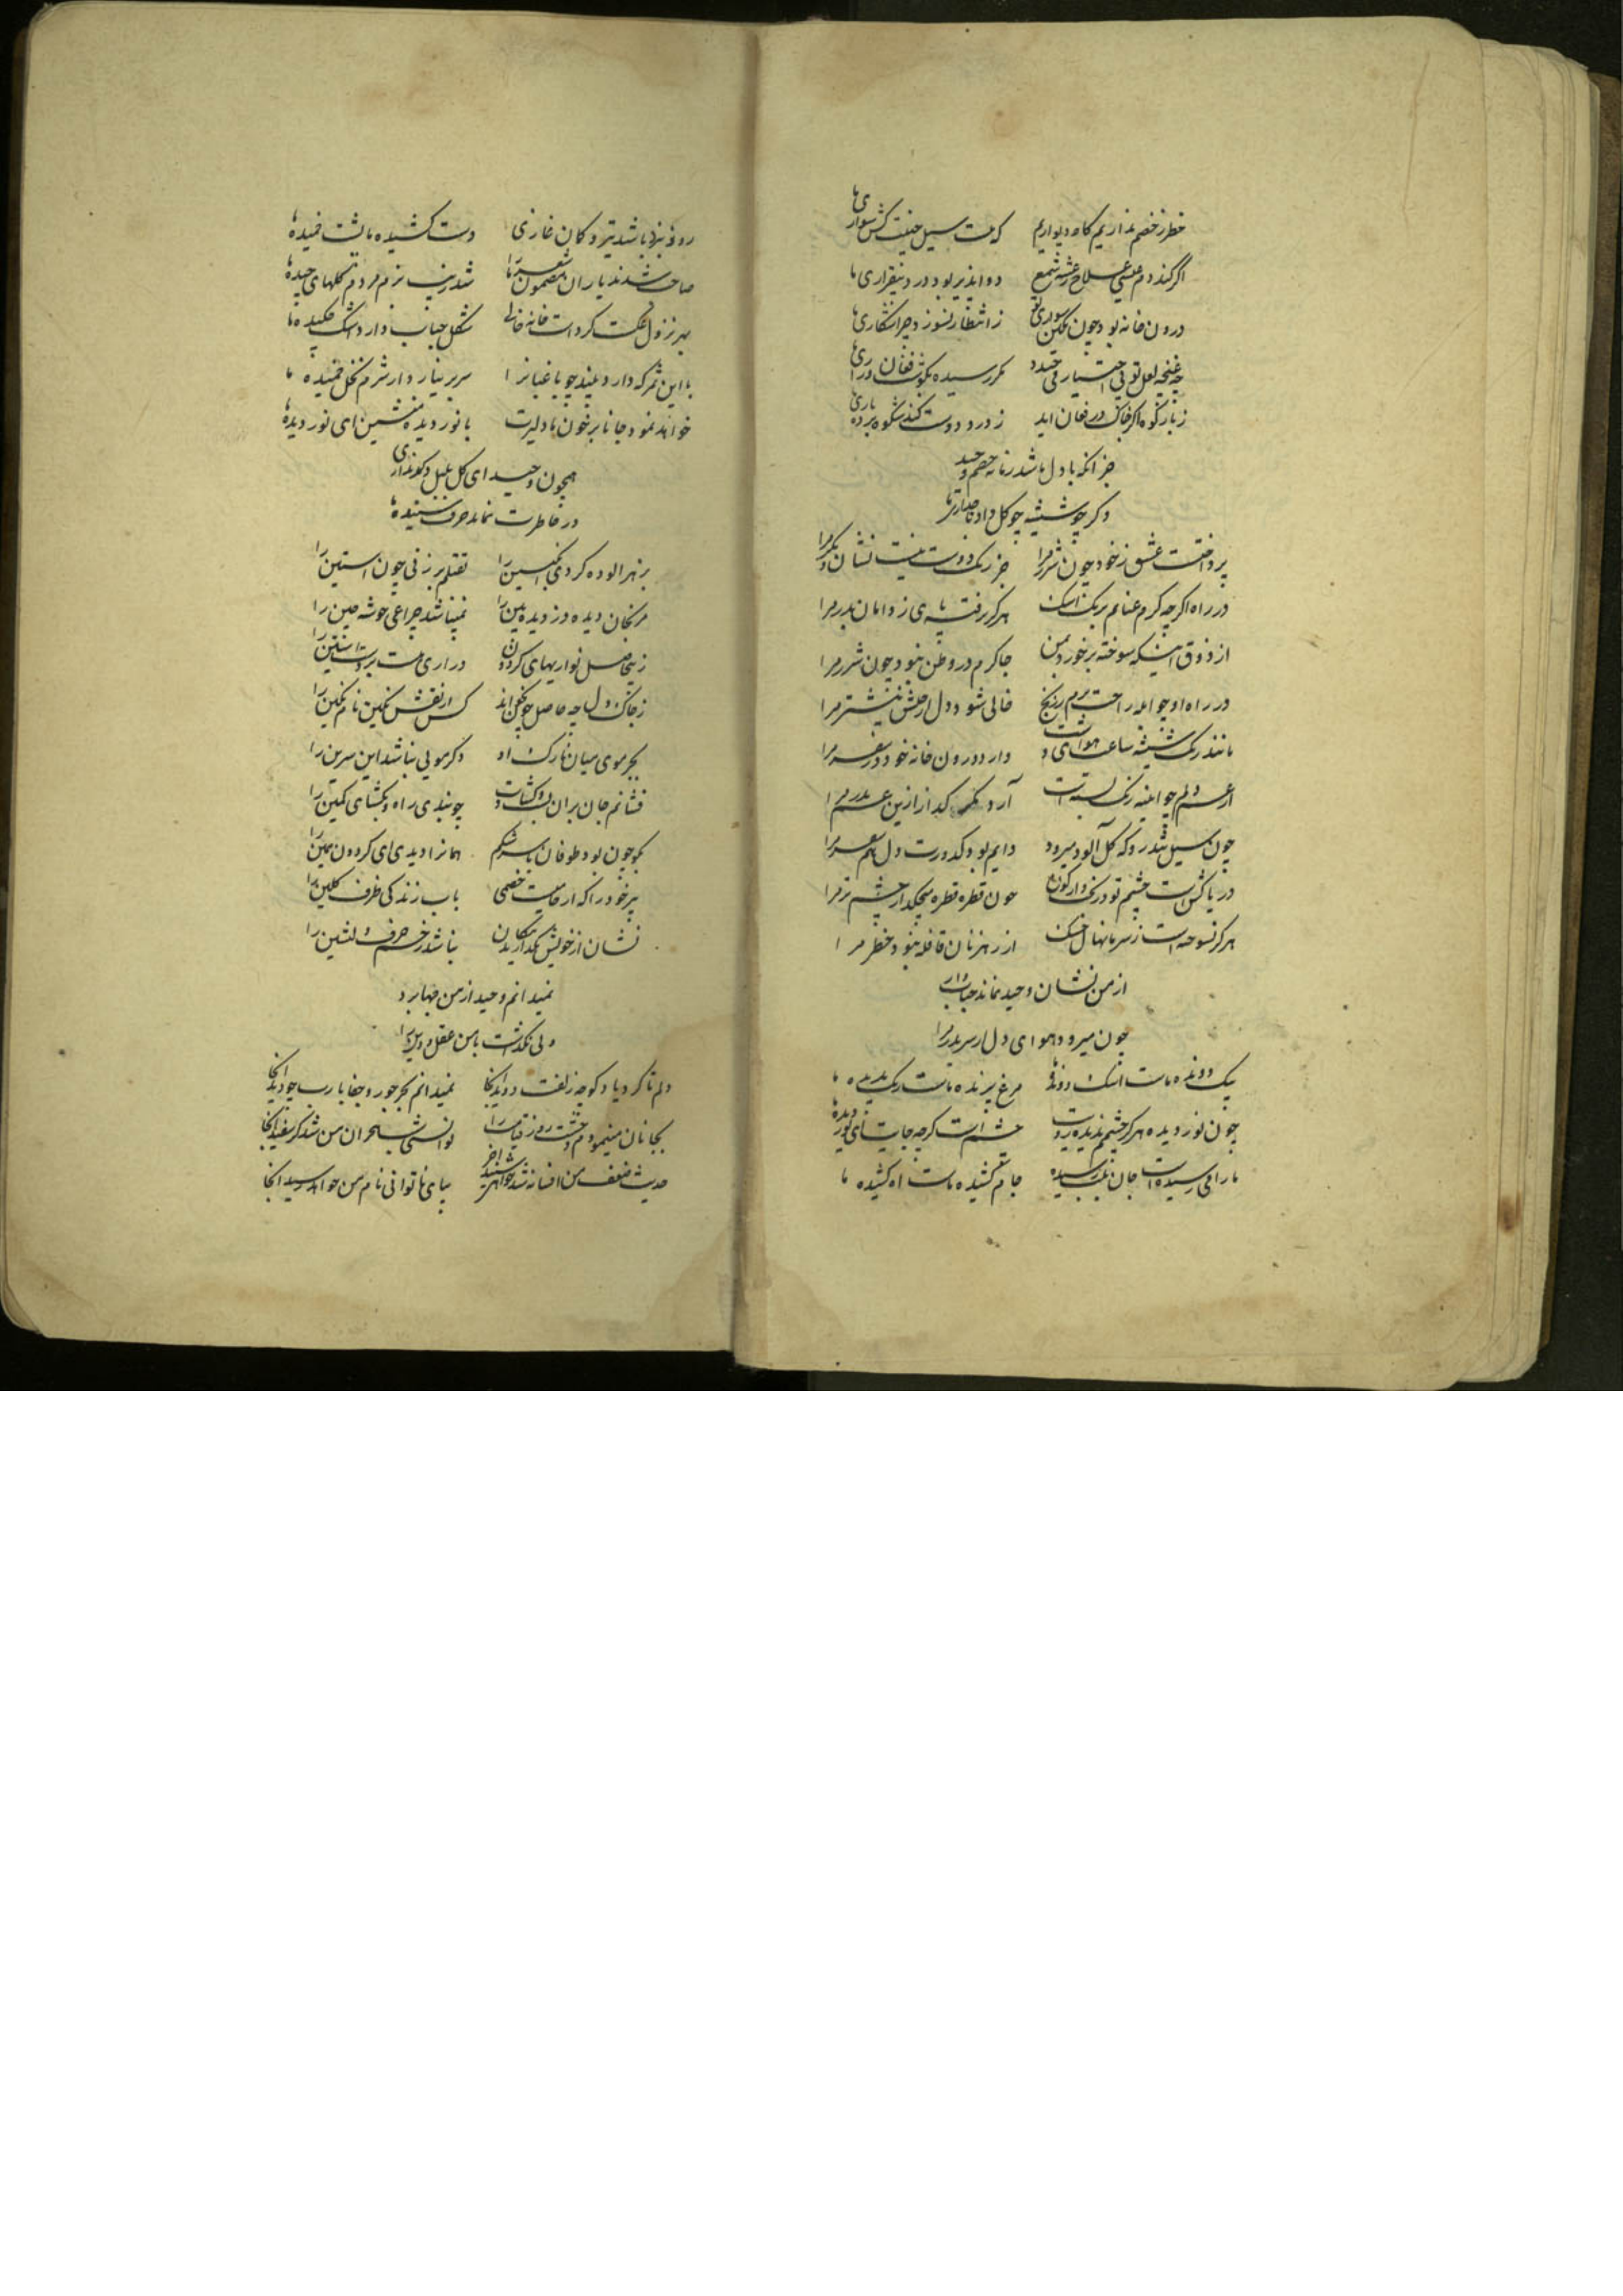 خطر ز خصم نداریم کاه دیواریم که هست سیل خفیف کش سواری ما
اگر کند دم عیسی علاج رعشه شمع دواپذیر بود درد بیقراری ما
درون خانه بود چون نکین ز انتظار نسوزد چرا شکاری ما
چه غنچه لعل تو بی اختیار می خندد مکر رسیده بکوش فغان و زاری ما
زبان کوه اکر خاک در فغان اید ز درد دوست کند شکوه بردباری ما
جز انکه با دل ما شد زمانه خصم وحید
دکر چو شیشه چو کل داد
پرداخت عشق ز خود چون شرر مرا جز رنک دوست نیست نشان دکر مرا
در راه اکر چه کرم عنانم بریک اشک هرکز نرفت پای ز دامان بدر مرا
از ذوق اینکه سوخته برخورد بمن جا کرم در وطن نبود چون شرر مرا
در راه او چو ابله راحت برم ز رنج خالی شود دل از خلش نیشتر مرا
مانند ریک شیشه ساعت هوای او دارد درون خانه خود در سفر مرا
از عمر دلم چو اینه زنک بسته است آرد کداز ازین بدر مرا
چون سیل تندرو که کل آلود میرود دایم بود کدورت دل همسفر مرا
دریاکش است چشم تو در خون قطره قطره میچکد از چشم تر مرا
هرکز نسوخته است ز سرما نهال خشک از رهزنان قافله نبود خطر مرا
از من نشان وحید نماند حباب وار
چون میرود هوای دل از سر بدر مرا
پیک دونده ماست اشک دونده ما مرغ پرنده ماست رنک پریده ما
چون نور دیده هرکز چشمم ندیده رویت چشم است کرچه جایت ای نور دیده ما
ما را می رسیده است جان بلب رسیده جام کشیده ماست اه کشیده ما
روز نبرد باشد تیر و کمان غازی دست کشیده ما پشت خمیده ما
صاحب شدند یاران مضمون شعر ما را شد زینت بزم مردم کلهای چیده ما
بهر نزول عکست کرد است خانه خالی شکل حباب دارد اشک چکیده ما
با این ثمر که دارد بیند چو باغبانرا سر بر نیارد از شرم نخل خمیده ما
خواهد نمود جانا بر خون ما دلیرت با نور دیده منشین ای نور دیده ما
همچون وحید ای کل بلبل دکر نداری
در خاطرت نماند حرف شنیده ما
بزهر الوده کردی انکبین را نقتلم بر زنی چون استین را
مژکان دیده دوز دیده بین را نمیباشد چراغی خوشه چین را
ز بیحاصل نوازیهای کردون درازی هست بر دست استین را
ز خاک دل چه حاصل چون کس از نقش نکین نام نکین را
بجز موی میان نازک او دکر مویی نباشد این سرین را
فشانم جان بران چو بندی راه و بکشای کمین را
بموجی چون بود طوفان سرشکم همانرا دیدی ای کردون همین را
بر خود را که از خصمی باب زندکی ظرف کلین را
نشان از خویش نکذارند نباشد زخم حرف دلنشین را
نمیدانم وحید از من چها برد
ولی نکذشت با من عقل و دین را
دلم تا کرد یاد کوچه زلفت دوید انجا نمیدانم بجز جور و جفا یا رب چه دید انجا
بجانان مینمودم وحشت روز قیامت را توانستی شب هجران من شد کر سفید انجا
حدیث ضعف من افسانه شد خواهی شنید اخر بپای ناتوانی نام من خواهد رسید انجا